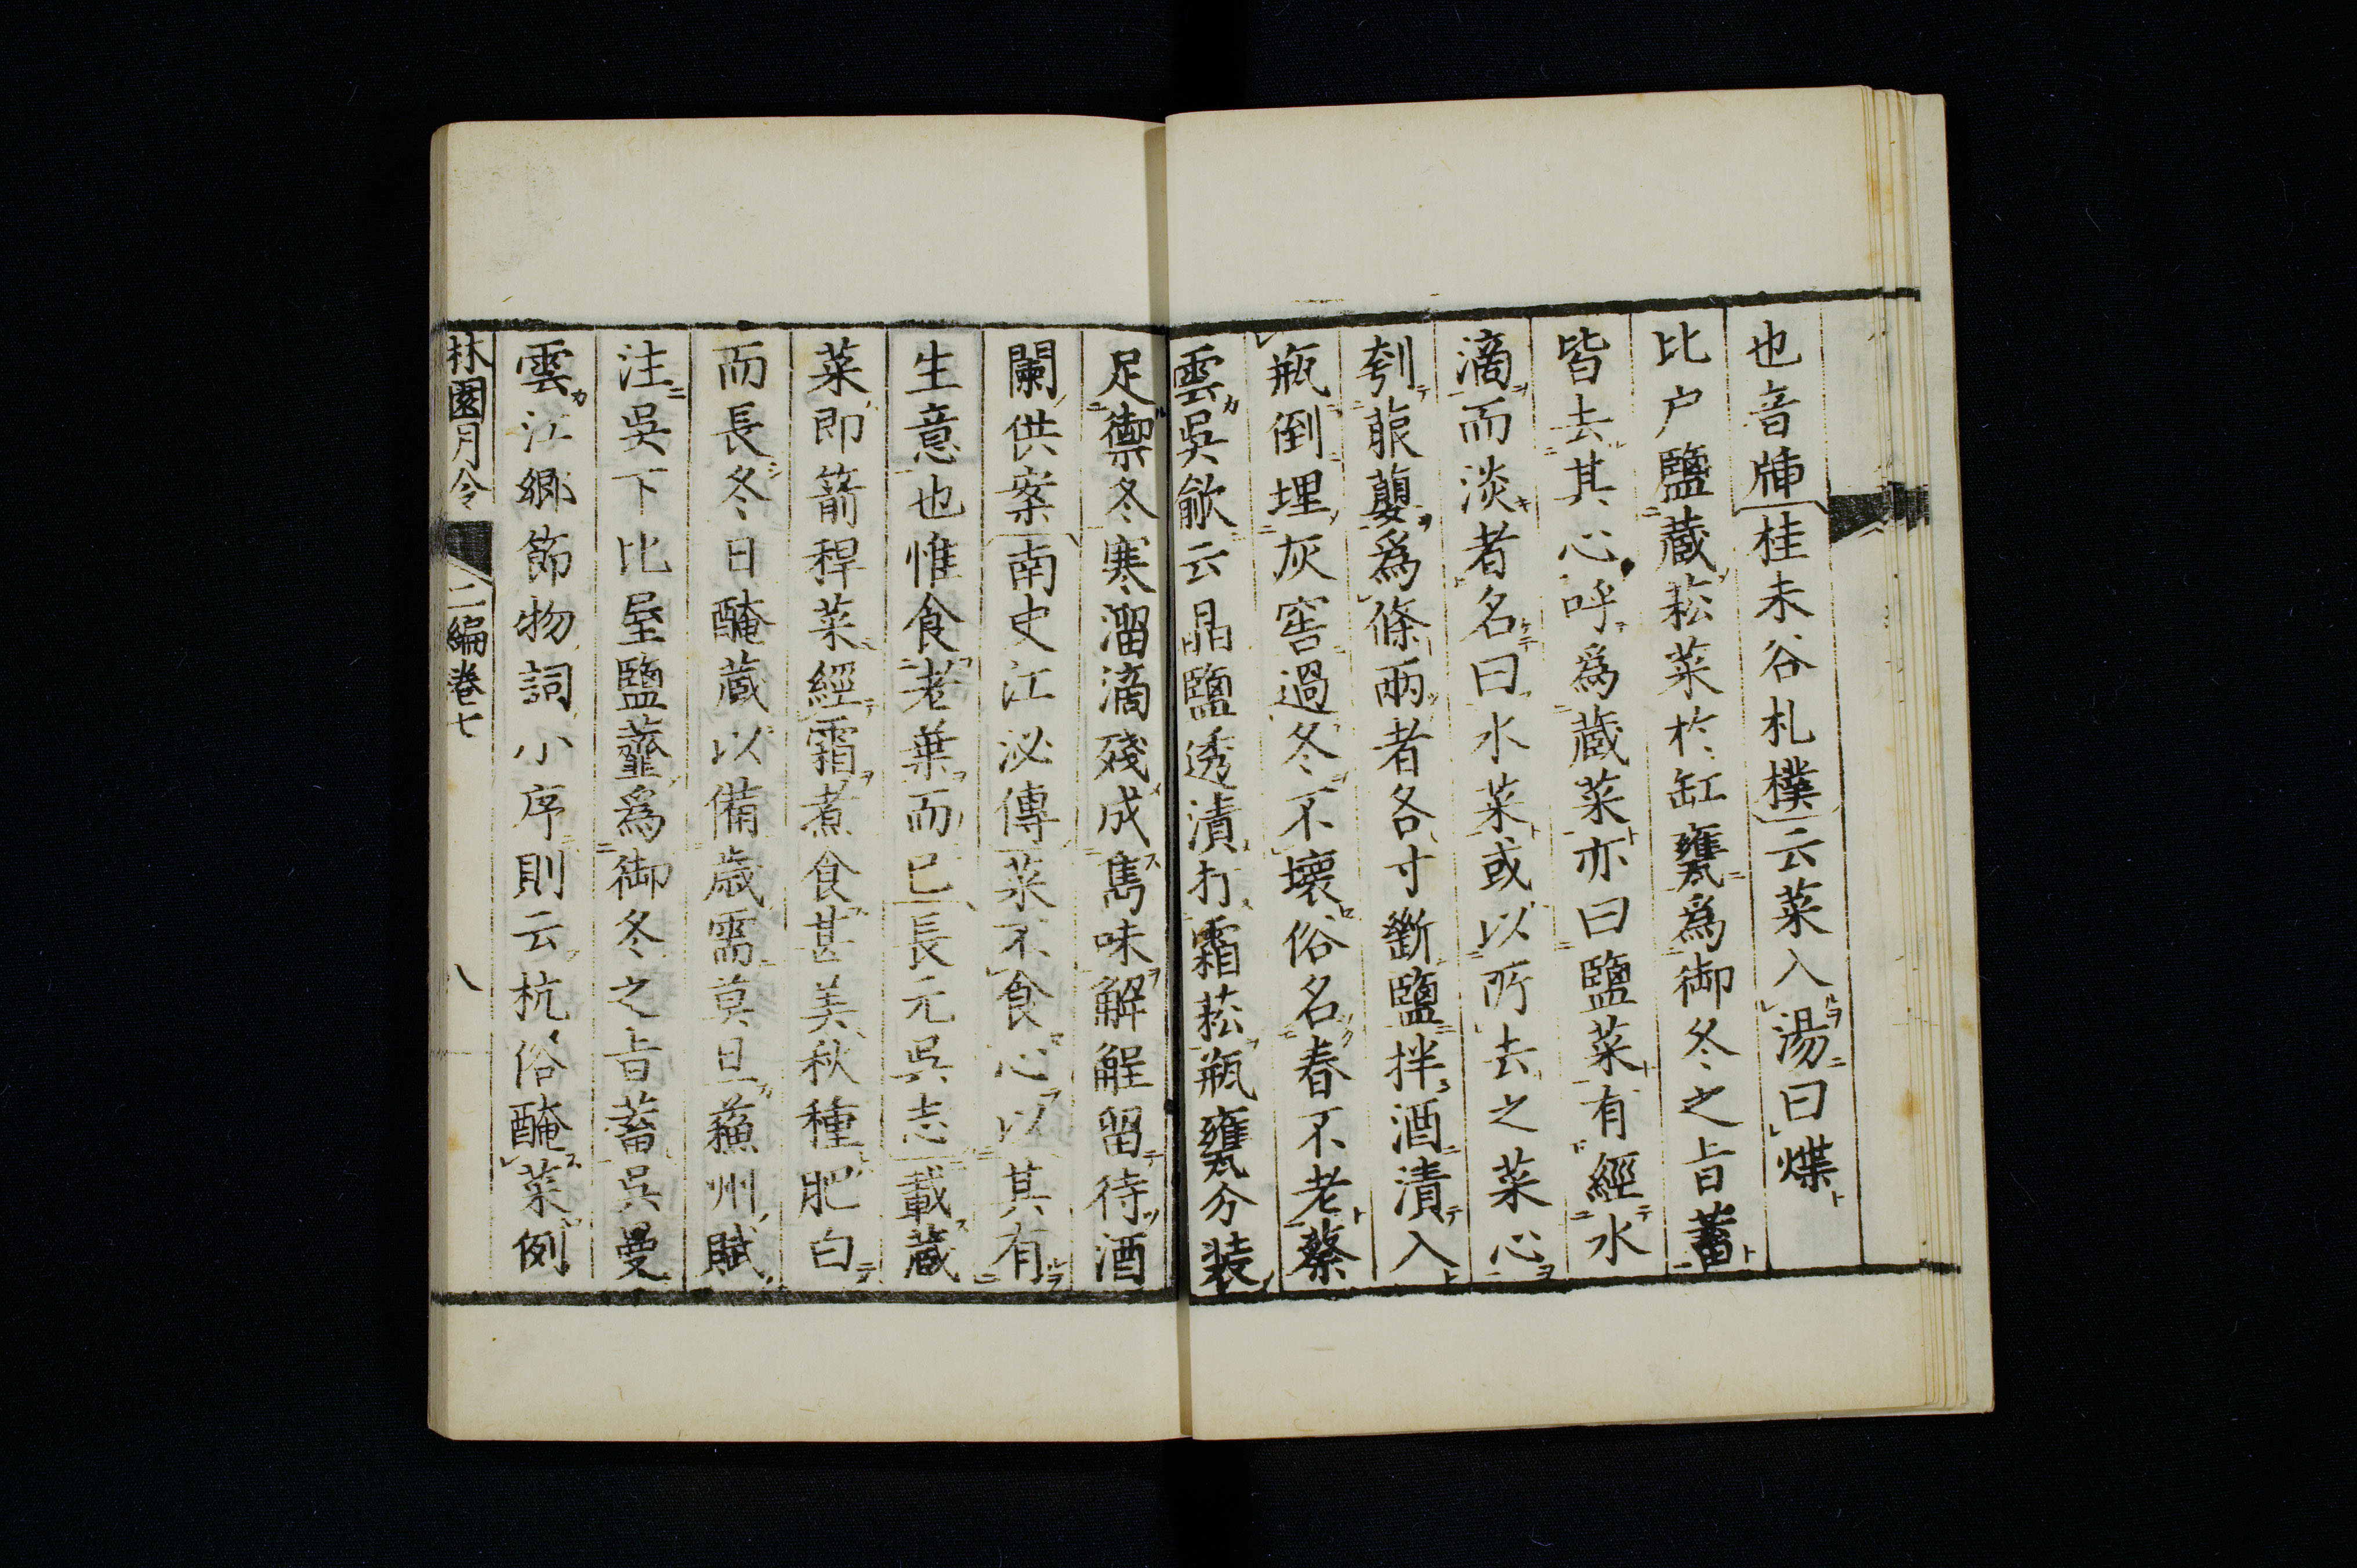 也音㢑桂未谷札樸云菜入湯曰煠
比户鹽蔵菘菜於缸甕爲御冬之旨蓄
皆去其心呼爲蔵菜亦曰鹽菜有經水
滴而淡者名曰水菜或以所去之菜心
刳菔蘡爲條兩者各寸斷鹽拌酒漬入
瓶倒埋灰窖過冬不壞俗名春不老蔡
雲吳歈云晶鹽透漬打霜菘瓶甕分装
足禦冬寒溜滴殘成雋味解酲留待酒
闌供案南史江泌傳菜不食心以其有
生意也惟食老葉而已長元吳志載蔵
菜即箭稈菜經霜煮食甚美秋種肥白
而長冬日醃蔵以備歳需莫旦蘓州賦
注吳下比屋鹽虀爲御冬之旨蓄吳曼
雲江鄉節物詞小序則云杭俗醃菜例
林園月令 二編卷七 八